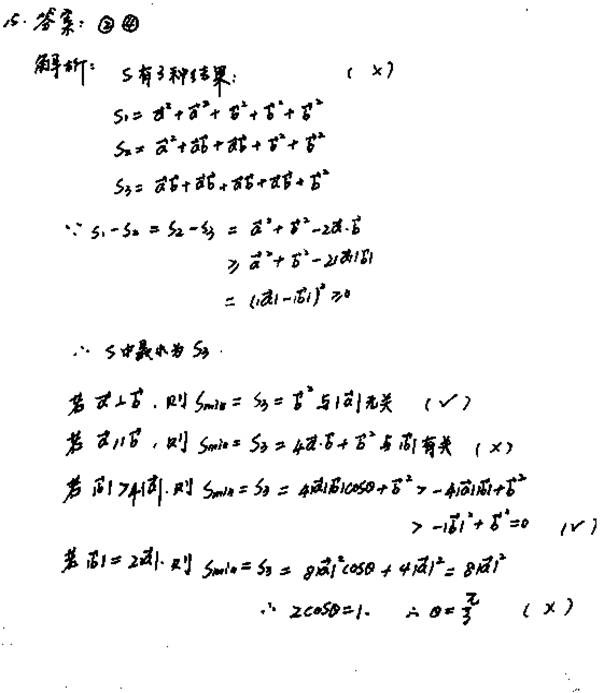 15. 答案: ②④
解析: S有3种结果: (×)
S₁ = a⃗² + a⃗² + b⃗² + b⃗² + b⃗²
S₂ = a⃗² + a⃗b⃗ + a⃗b⃗ + b⃗² + b⃗²
S₃ = a⃗b⃗ + a⃗b⃗ + a⃗b⃗ + a⃗b⃗ + b⃗²
∵ S₁-S₂ = S₂-S₃ = a⃗² + b⃗² - 2a⃗·b⃗
≥ a⃗² + b⃗² - 2|a⃗||b⃗|
= (|a⃗|-|b⃗|)² ≥ 0
∴ S中最小为 S₃.
若 a⃗⊥b⃗, 则 Smin = S₃ = b⃗² 与|a⃗|无关 (✓)
若 a⃗∥b⃗, 则 Smin = S₃ = 4a⃗·b⃗ + b⃗² 与|b⃗|有关 (×)
若 |b⃗|>4|a⃗|, 则 Smin = S₃ = 4|a⃗||b⃗|cosθ + b⃗² > -4|a⃗||b⃗| + b⃗²
> -|b⃗|² + b⃗² = 0 (✓)
若 |b⃗| = 2|a⃗|, 则 Smin = S₃ = 8|a⃗|²cosθ + 4|a⃗|² = 8|a⃗|²
∴ 2cosθ = 1. ∴ θ = π/3 (×)